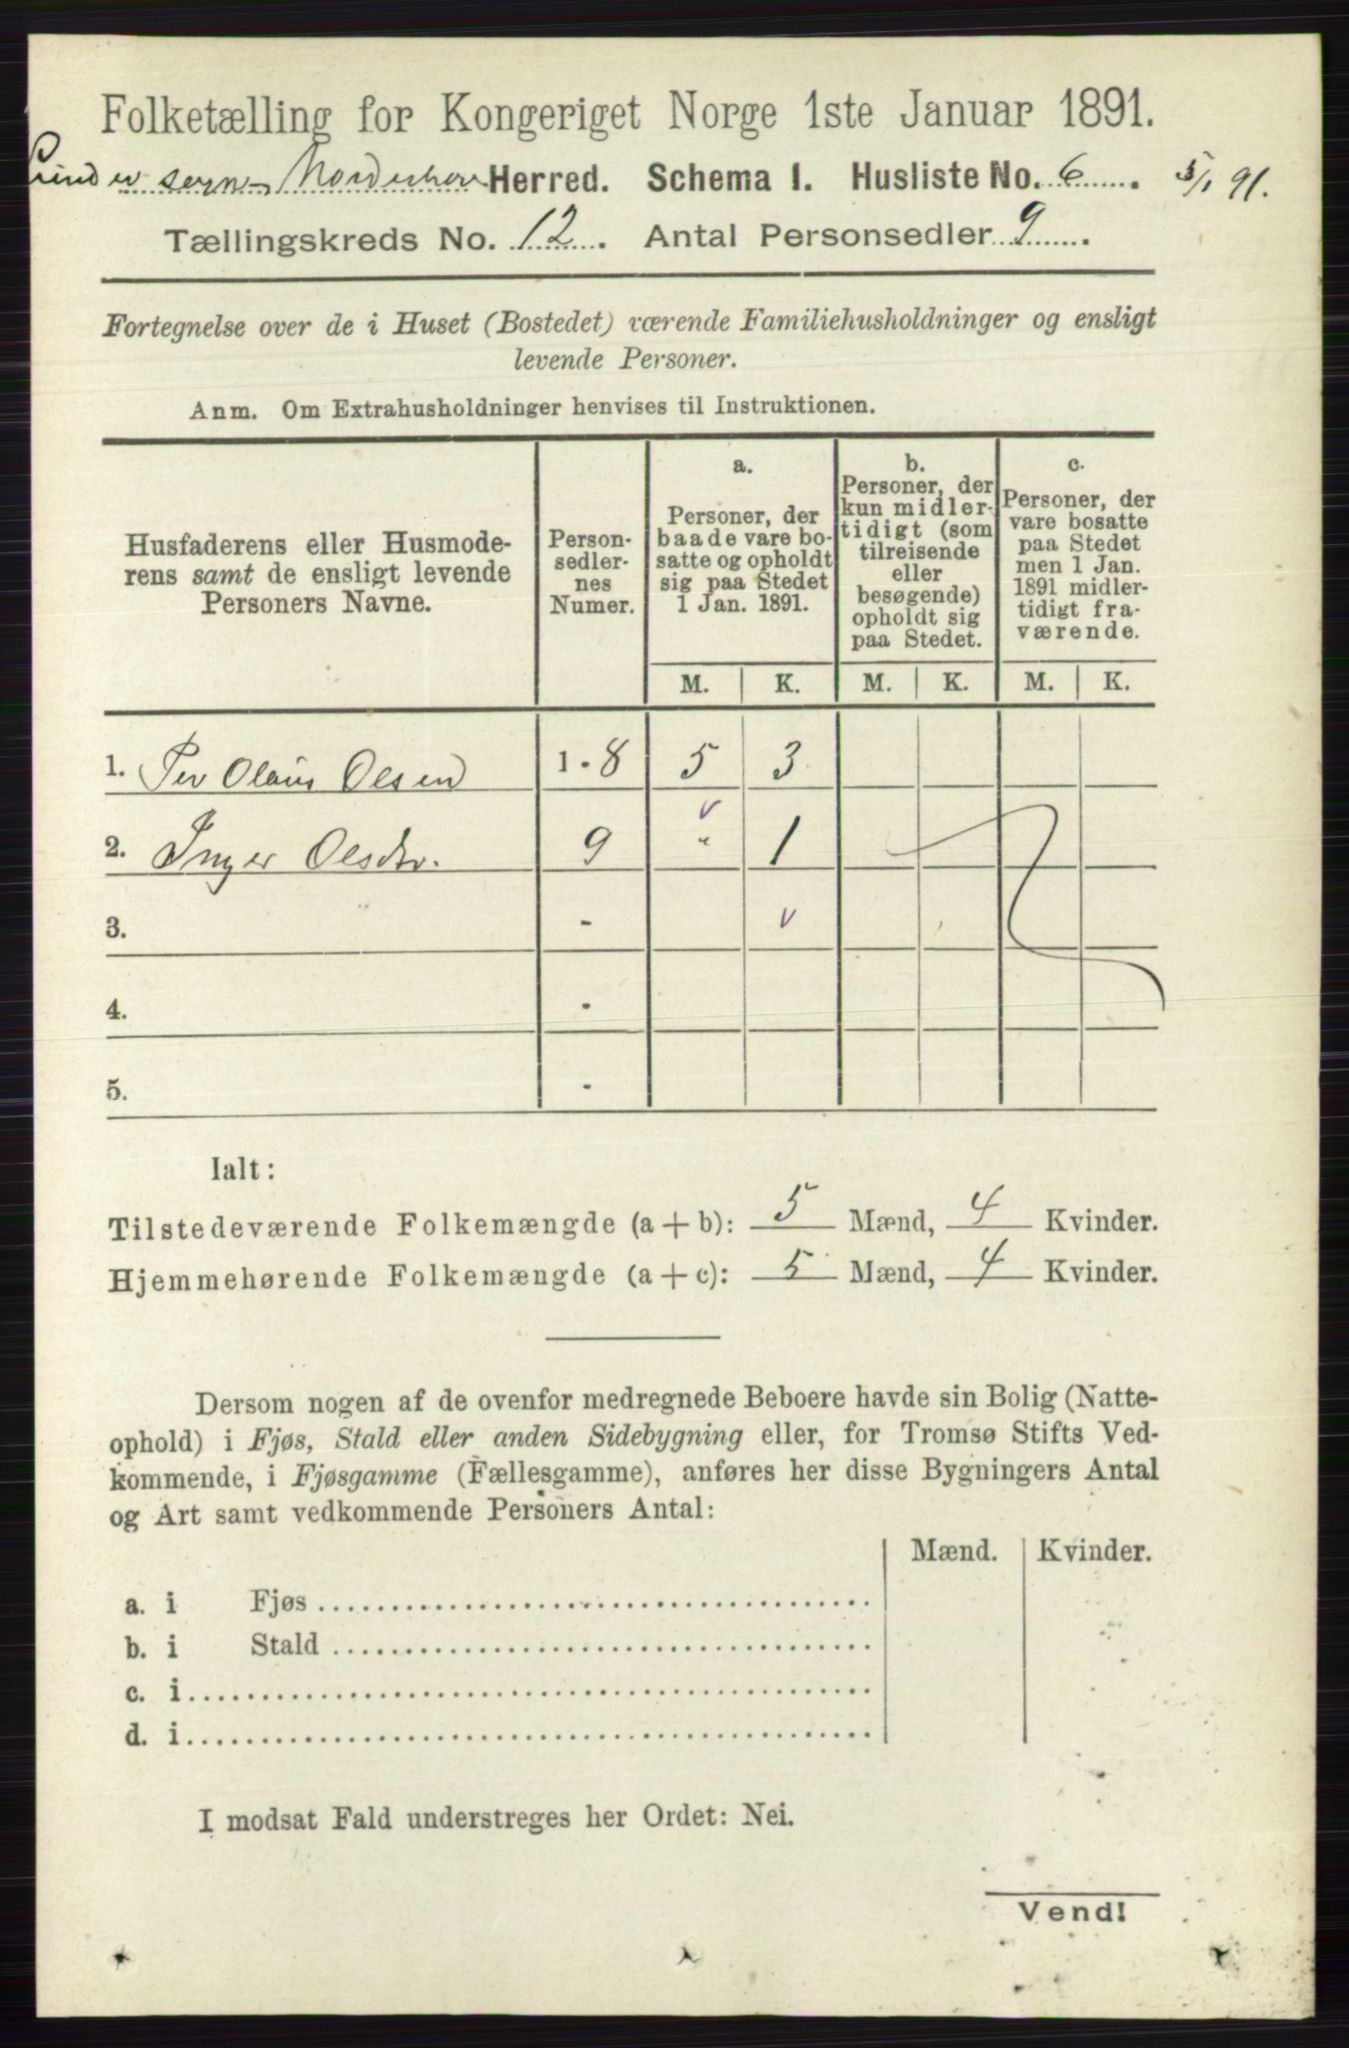 Folketælling for Kongeriget Norge 1ste Januar 1891.
sogn Norderhov Herred. Schema I. Husliste No. 6. 5/1 91.
Tællingskreds No. 12. Antal Personsedler 9.
Fortegnelse over de i Huset (Bostedet) værende Familiehusholdninger og ensligt
levende Personer.
Anm. Om Extrahusholdninger henvises til Instruktionen.
Husfaderens eller Husmode-
rens samt de ensligt levende
Personers Navne.
Person-
sedler-
nes
Numer.
a.
Personer, der
baade vare bo-
satte og opholdt
sig paa Stedet
1 Jan. 1891.
b.
Personer, der
kun midler-
tidigt (som
tilreisende
eller
besøgende)
opholdt sig
paa Stedet.
c.
Personer, der
vare bosatte
paa Stedet
men 1 Jan.
1891 midler-
tidigt fra-
værende.
M. K. M. K. M. K.
1. Per Olaus Olsen 1 - 8 5 3
2. Inger Olsdtr. 9 " 1
3. -
4. -
5. -
Ialt:
Tilstedeværende Folkemængde (a + b): 5 Mænd, 4 Kvinder.
Hjemmehørende Folkemængde (a + c): 5 Mænd, 4 Kvinder.
Dersom nogen af de ovenfor medregnede Beboere havde sin Bolig (Natte-
ophold) i Fjøs, Stald eller anden Sidebygning eller, for Tromsø Stifts Ved-
kommende, i Fjøsgamme (Fællesgamme), anføres her disse Bygningers Antal
og Art samt vedkommende Personers Antal:
Mænd. Kvinder.
a. i Fjøs
b. i Stald
c. i
d. i
I modsat Fald understreges her Ordet: Nei.
Vend!